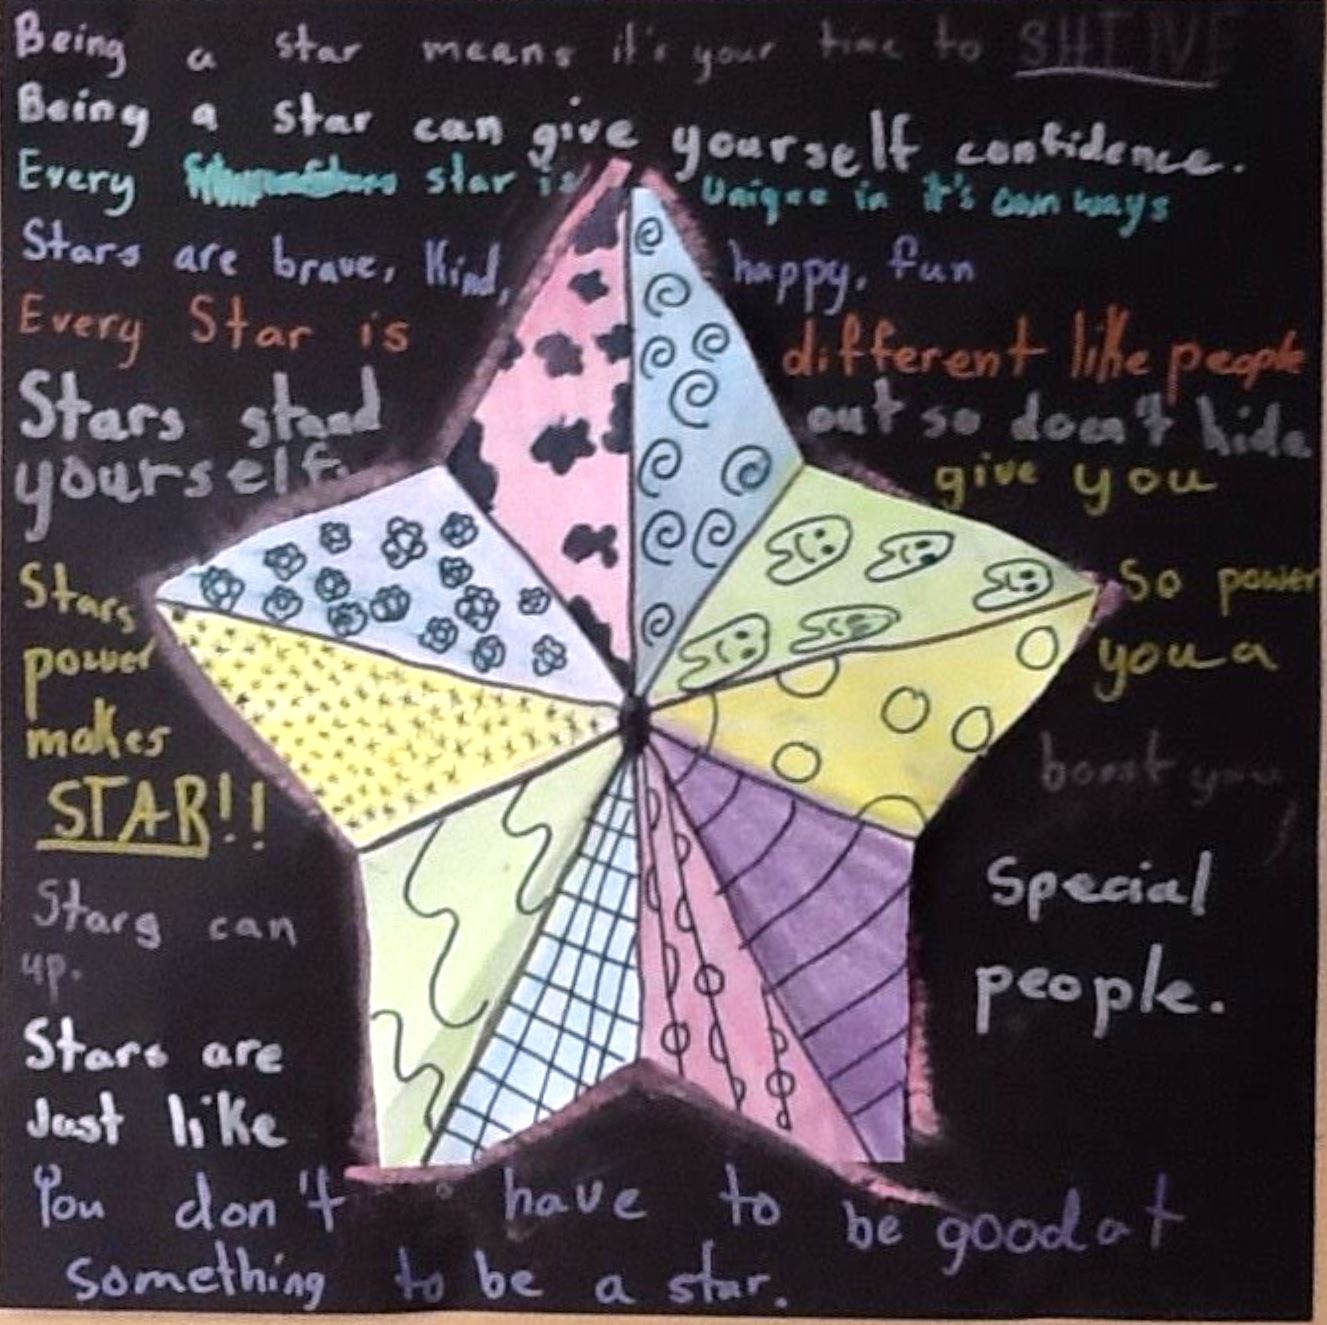 Being a star means it's your time to SHINE
Being a star can give yourself confidence.
Every star is unique in it's own ways
Stars are brave, Kind, happy, fun
Every Star is different like people
Stars stand out so doen't hide
yourself. give you
Stars so power
power you a
makes
STAR!!
boost you
Stars can
up.
Special
people.
Stars are
Just like
You don't have to be good at
something to be a star.